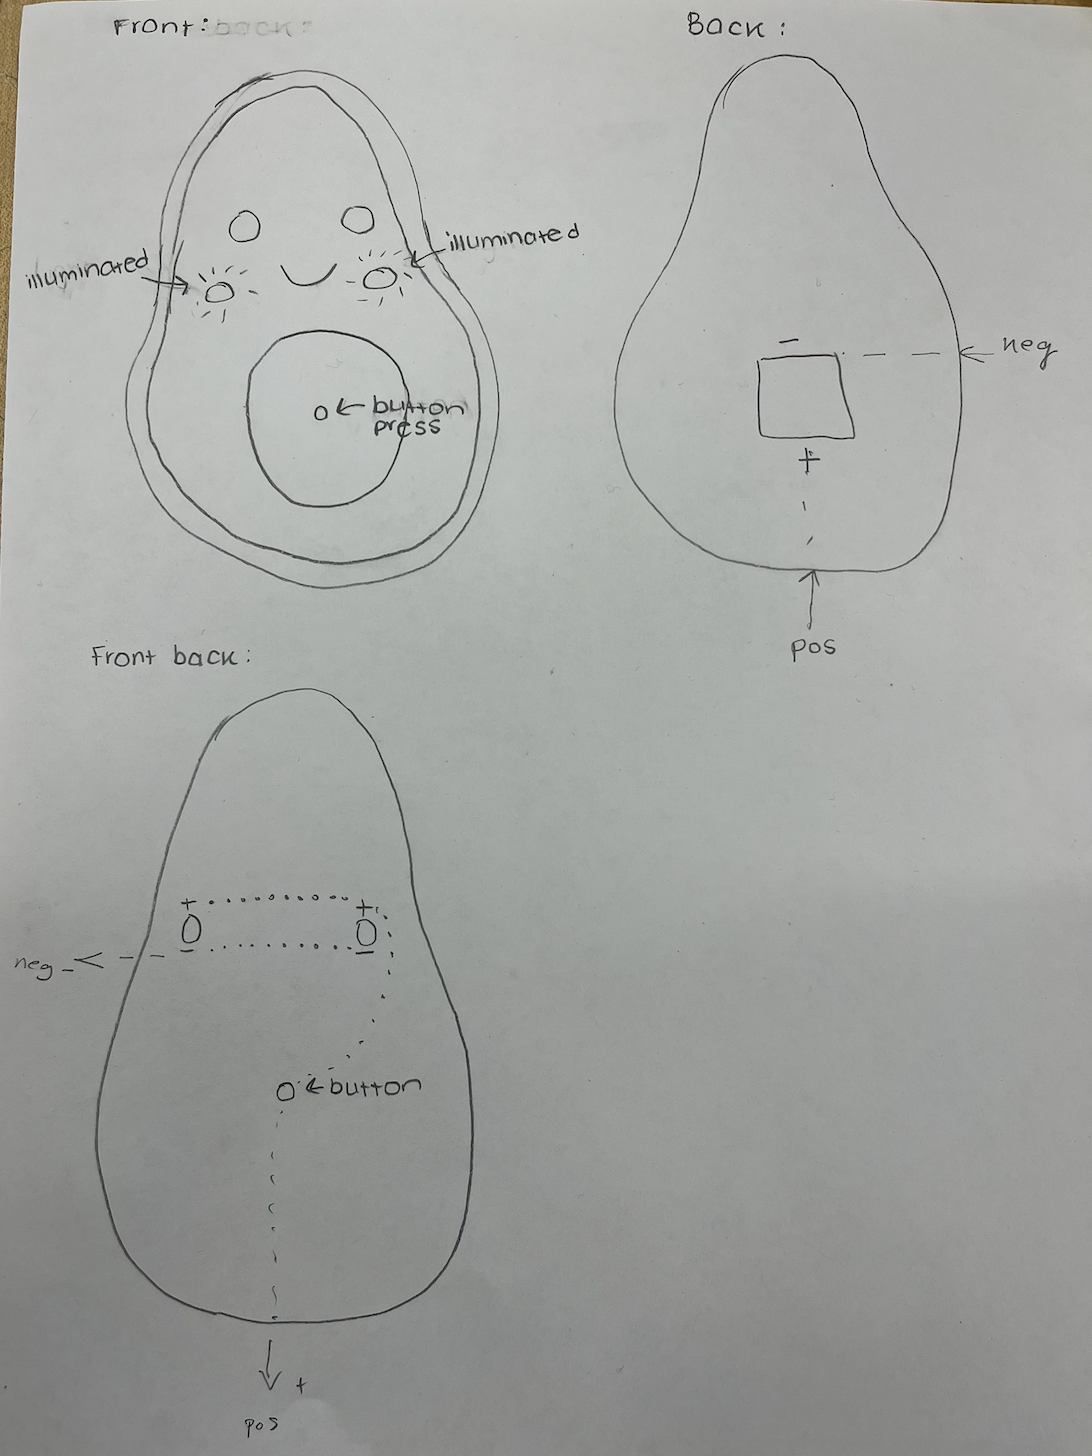 Front: back:
Back:
illuminated
illuminated
button
press
-
neg
+
pos
Front back:
+
+
-
-
neg -
button
+
pos